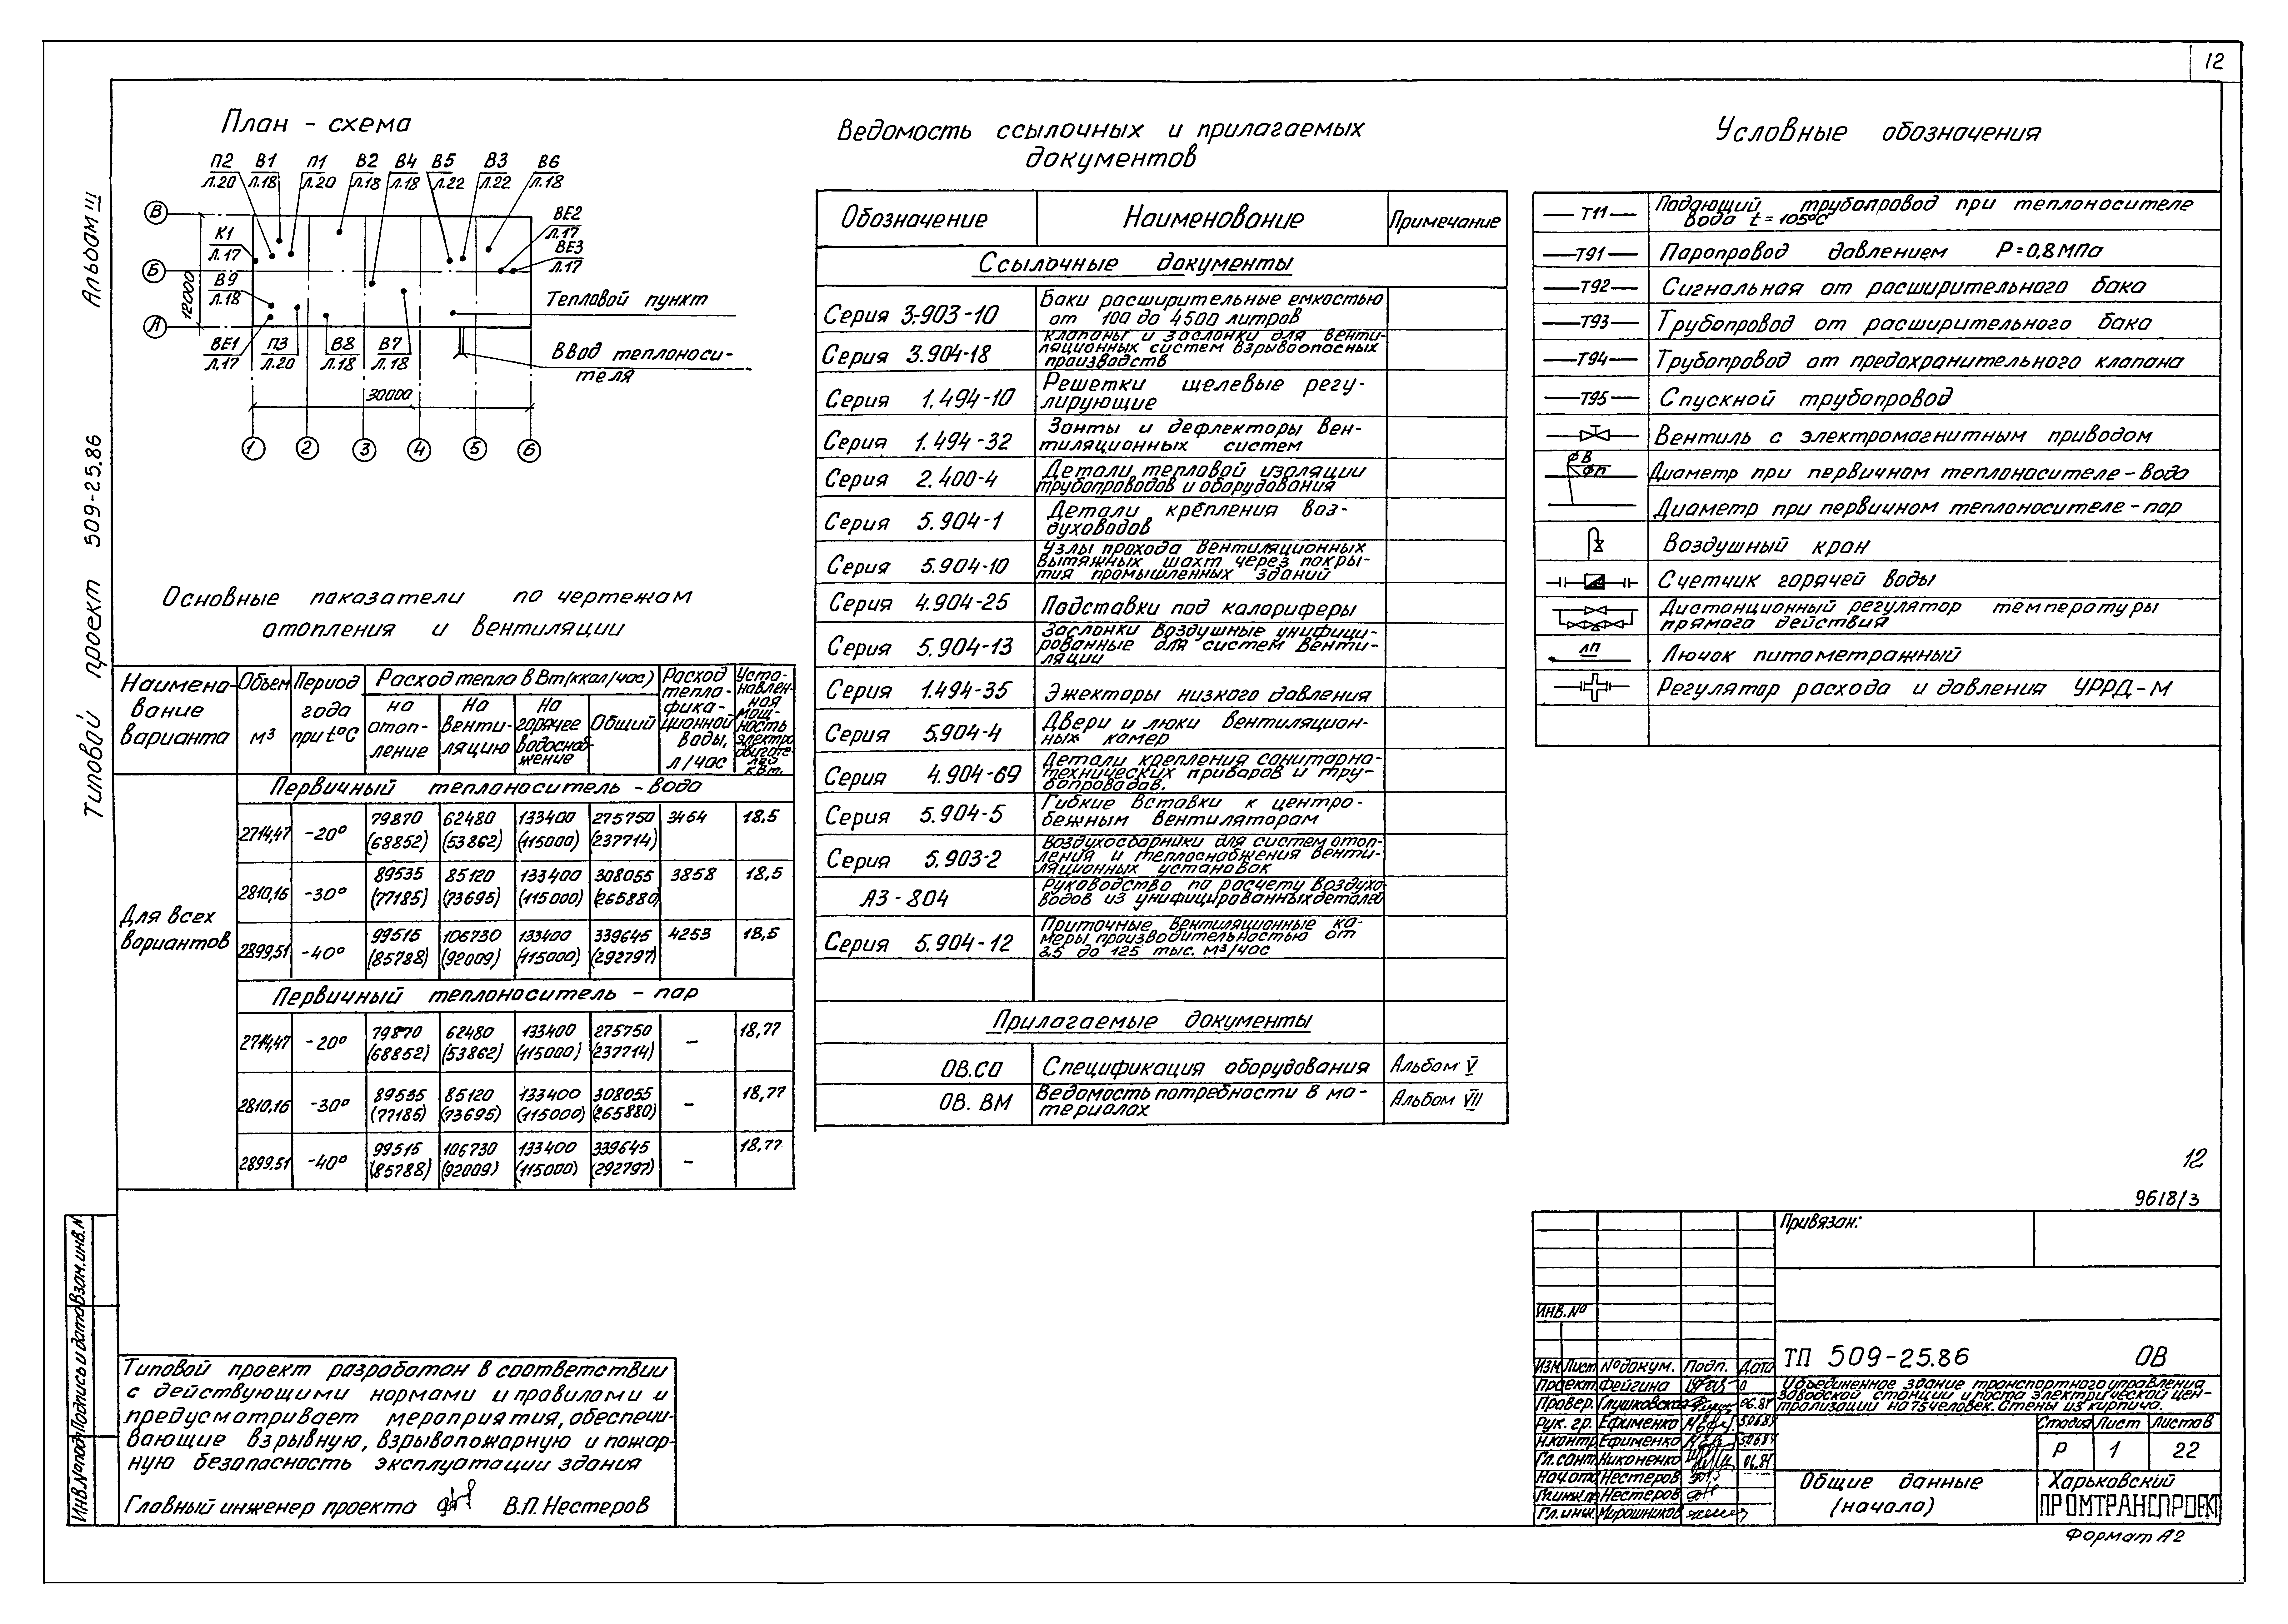 12
Альбом III
Типовой проект 509-25.86
План - схема
П2 В1 П1 В2 В4 В5 В3 В6
Л.20 Л.18 Л.20 Л.18 Л.18 Л.22 Л.22 Л.18
ВЕ2
Л.17
ВЕ3
Л.17
К1
Л.17
В9
Л.18
В
Б
А
12000
Тепловой пункт
Ввод теплоноси-
теля
ВЕ1 П3 В8 В7
Л.17 Л.20 Л.18 Л.18
30000
1 2 3 4 5 6
Основные показатели по чертежам
отопления и вентиляции
Наимено-
вание
варианта
Объем
м³
Период
года
при t°С
Расход тепла в Вт (ккал/час)
на
отоп-
ление
На
венти-
ляцию
На
горячее
водоснаб-
жение
Общий
Расход
тепло-
фика-
ционной
воды,
л/час
Уста-
навлен-
ная
мощ-
ность
электро
двигате-
лей
кВт.
Для всех
вариантов
Первичный теплоноситель - вода
2714,47 -20° 79870 62480 133400 275750 3454 18.5
(68852) (53862) (115000) (237714)
2810,16 -30° 89535 85120 133400 308055 3858 18,5
(77185) (73695) (115000) (265880)
2899,51 -40° 99515 106730 133400 339645 4253 18,5
(85788) (92009) (115000) (292797)
Первичный теплоноситель - пар
2714,47 -20° 79870 62480 133400 275750 – 18,77
(68852) (53862) (115000) (237714)
2810,16 -30° 89535 85120 133400 308055 – 18,77
(77185) (73695) (115000) (265880)
2899.51 -40° 99515 106730 133400 339645 – 18,77
(85788) (92009) (115000) (292797)
Типовой проект разработан в соответствии
с действующими нормами и правилами и
предусматривает мероприятия, обеспечи-
вающие взрывную, взрывопожарную и пожар-
ную безопасность эксплуатации здания
Главный инженер проекта В.П. Нестеров
Инв.№подл. Подпись и дата Взам.инв.№
Ведомость ссылочных и прилагаемых
документов
Обозначение Наименование Примечание
Ссылочные документы
Серия 3.903-10 Баки расширительные емкостью
от 100 до 4500 литров
Серия 3.904-18 Клапаны и заслонки для венти-
ляционных систем взрывоопасных
производств
Серия 1.494-10 Решетки щелевые регу-
лирующие
Серия 1.494-32 Зонты и дефлекторы вен-
тиляционных систем
Серия 2.400-4 Детали тепловой изоляции
трубопроводов и оборудования
Серия 5.904-1 Детали крепления воз-
духоводов
Серия 5.904-10 Узлы прохода вентиляционных
вытяжных шахт через покры-
тия промышленных зданий
Серия 4.904-25 Подставки под калориферы
Серия 5.904-13 Заслонки воздушные унифици-
рованные для систем венти-
ляции
Серия 1.494-35 Эжекторы низкого давления
Серия 5.904-4 Двери и люки вентиляцион-
ных камер
Серия 4.904-69 Детали крепления санитарно-
технических приборов и тру-
бопроводов.
Серия 5.904-5 Гибкие вставки к центро-
бежным вентиляторам
Серия 5.903-2 Воздухосборники для систем отоп-
ления и теплоснабжения венти-
ляционных установок
А3-804 Руководство по расчету воздухо-
водов из унифицированных деталей
Серия 5.904-12 Приточные вентиляционные ка-
меры производительностью от
3.5 до 125 тыс. м³/час
Прилагаемые документы
ОВ.СО Спецификация оборудования Альбом V
ОВ. ВМ Ведомость потребности в ма-
териалах Альбом VII
Условные обозначения
Т11 Подающий трубопровод при теплоносителе
вода t = 105°С
Т91 Паропровод давлением Р=0,8 МПа
Т92 Сигнальная от расширительного бака
Т93 Трубопровод от расширительного бака
Т94 Трубопровод от предохранительного клапана
Т95 Спускной трубопровод
Вентиль с электромагнитным приводом
фВ
фп
Диаметр при первичном теплоносителе - вода
Диаметр при первичном теплоносителе - пар
Воздушный кран
Счетчик горячей воды
Дистанционный регулятор температуры
прямого действия
ЛП Лючок питометражный
Регулятор расхода и давления УРРД-М
12
9618/3
Привязан:
Инв.№
Изм Лист № докум. Подп. Дата
Проект. Фейгина
Провер. Глушковская 06.84
Рук. гр. Ефименко
Н.контр. Ефименко
Гл.сант. Никоненко 06.84
Нач.отд Нестеров
Гл.инж.пр Нестеров
Гл.инж. Мирошников
ТП 509-25.86 ОВ
Объединенное здание транспортного управления
заводской станции и поста электрической цен-
трализации на 75 человек. Стены из кирпича.
Стадия Лист Листов
Р 1 22
Общие данные
(начало)
Харьковский
ПРОМТРАНСПРОЕКТ
Формат А2